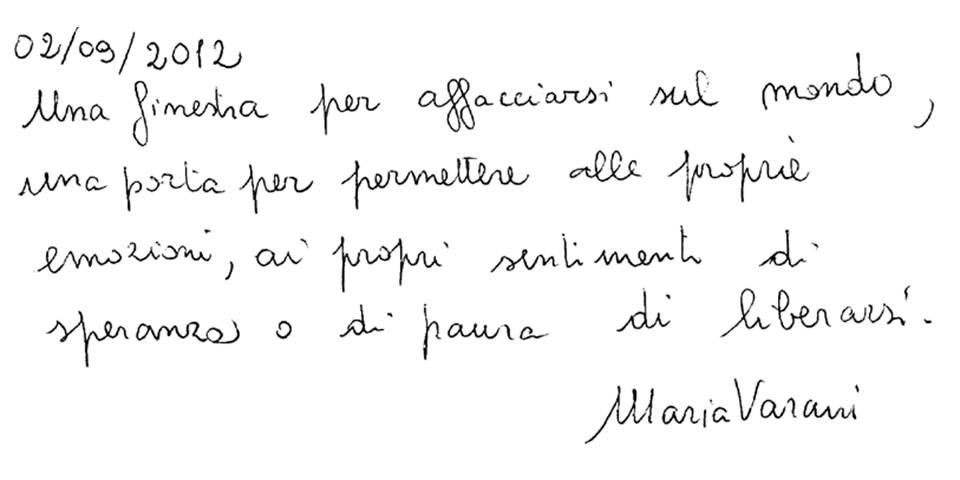 02/09/2012
Una finestra per affacciarsi sul mondo,
una porta per permettere alle proprie
emozioni, ai propri sentimenti di
speranza o di paura di liberarsi.
Maria Varani